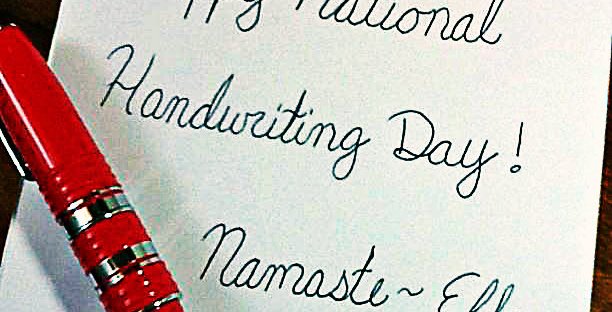 National
Handwriting Day!
Namaste~